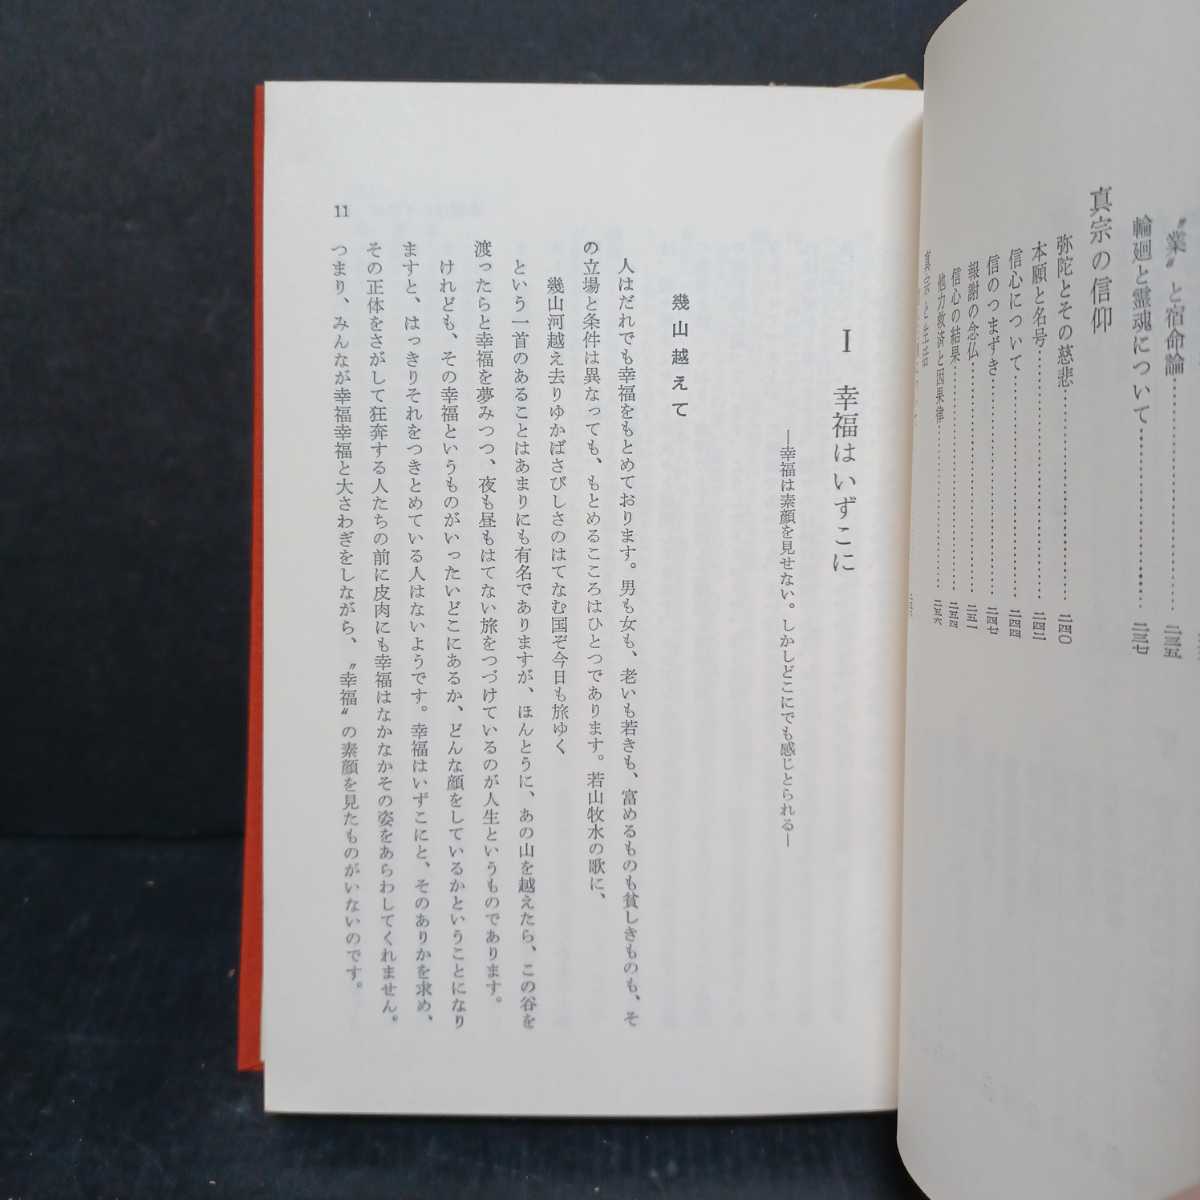 〝業〟と宿命論……二三五
輪廻と霊魂について……二三七
真宗の信仰
弥陀とその慈悲……二四〇
本願と名号……二四二
信心について……二四四
信のつまずき……二四七
報謝の念仏……二五一
信心の結果……二五四
他力救済と因果律……二五六
真宗と生活
I 幸福はいずこに
―幸福は素顔を見せない。しかしどこにでも感じとられる―
幾山越えて
人はだれでも幸福をもとめております。男も女も、老いも若きも、富めるものも貧しきものも、そ
の立場と条件は異なっても、もとめるこころはひとつであります。若山牧水の歌に、
幾山河越え去りゆかばさびしさのはてなむ国ぞ今日も旅ゆく
という一首のあることはあまりにも有名でありますが、ほんとうに、あの山を越えたら、この谷を
渡ったらと幸福を夢みつつ、夜も昼もはてない旅をつづけているのが人生というものであります。
けれども、その幸福というものがいったいどこにあるか、どんな顔をしているかということになり
ますと、はっきりそれをつきとめている人はないようです。幸福はいずこにと、そのありかを求め、
その正体をさがして狂奔する人たちの前に皮肉にも幸福はなかなかその姿をあらわしてくれません。
つまり、みんなが幸福幸福と大さわぎをしながら、〝幸福〟の素顔を見たものがいないのです。
11